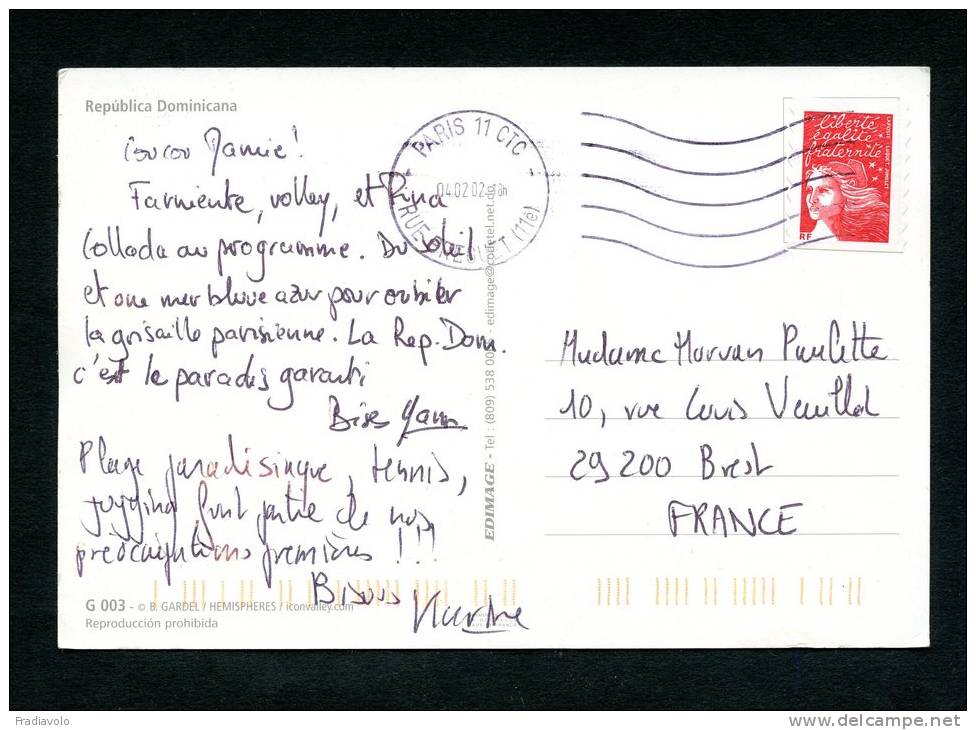 República Dominicana
Coucou Mamie!
Farniente, volley, et Pina
Collada au programme. Du Soleil
et une mer bleue azur pour oublier
la grisaille parisienne. La Rep. Dom.
c'est le paradis garanti
Bises Yann
Plage paradisiaque, tennis,
jogging font partie de nos
préoccupations premières !!!
Bisous
G 003 - © B. GARDEL / HEMISPHERES / iconvalley.com
Reproducción prohibida
EDIMAGE - Tel : (809) 538 00 - edimage@codetel.net.do
PARIS 11 CTC
04.02.02 18h
RUE (11è)
liberté
égalité
fraternité
RF
LA POSTE LUQUET JUMELET
Madame Morvan Paulette
10, rue Louis Veuillot
29200 Brest
FRANCE
Fradiavolo.
www.delcampe.net